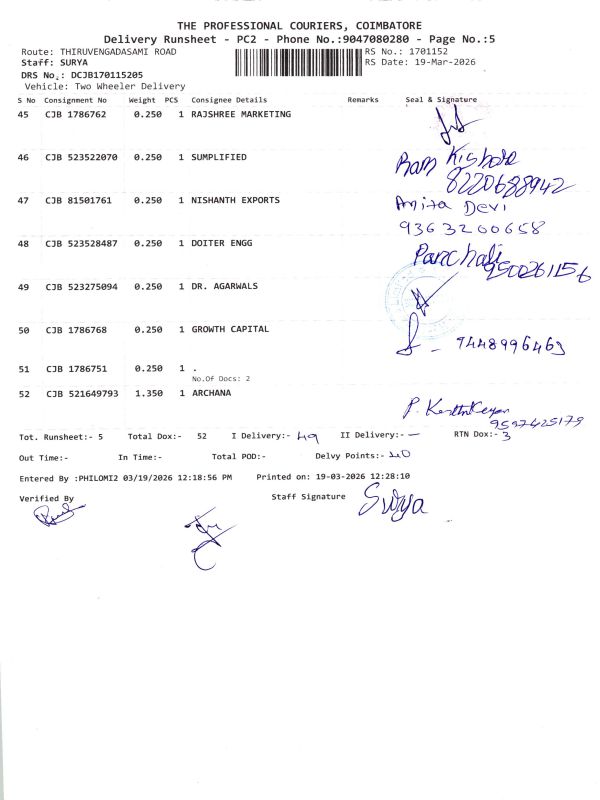 THE PROFESSIONAL COURIERS, COIMBATORE
Delivery Runsheet - PC2 - Phone No.:9047080280 - Page No.:5
Route: THIRUVENGADASAMI ROAD
RS No.: 1701152
Staff: SURYA
RS Date: 19-Mar-2026
DRS No.: DCJB170115205
Vehicle: Two Wheeler Delivery
S No Consignment No Weight PCS Consignee Details Remarks Seal & Signature
45 CJB 1786762 0.250 1 RAJSHREE MARKETING
46 CJB 523522070 0.250 1 SUMPLIFIED Ram Kishore
8220688942
47 CJB 81501761 0.250 1 NISHANTH EXPORTS Anita Devi
9363200658
48 CJB 523528487 0.250 1 DOITER ENGG Panchali
950261156
49 CJB 523275094 0.250 1 DR. AGARWALS
50 CJB 1786768 0.250 1 GROWTH CAPITAL
- 9448996463
51 CJB 1786751 0.250 1 .
No.Of Docs: 2
52 CJB 521649793 1.350 1 ARCHANA
9597425179
Tot. Runsheet:- 5 Total Dox:- 52 I Delivery:- 49 II Delivery:- - RTN Dox:- 3
Out Time:- In Time:- Total POD:- Delvy Points:- 40
Entered By :PHILOMI2 03/19/2026 12:18:56 PM Printed on: 19-03-2026 12:28:10
Verified By Staff Signature Surya